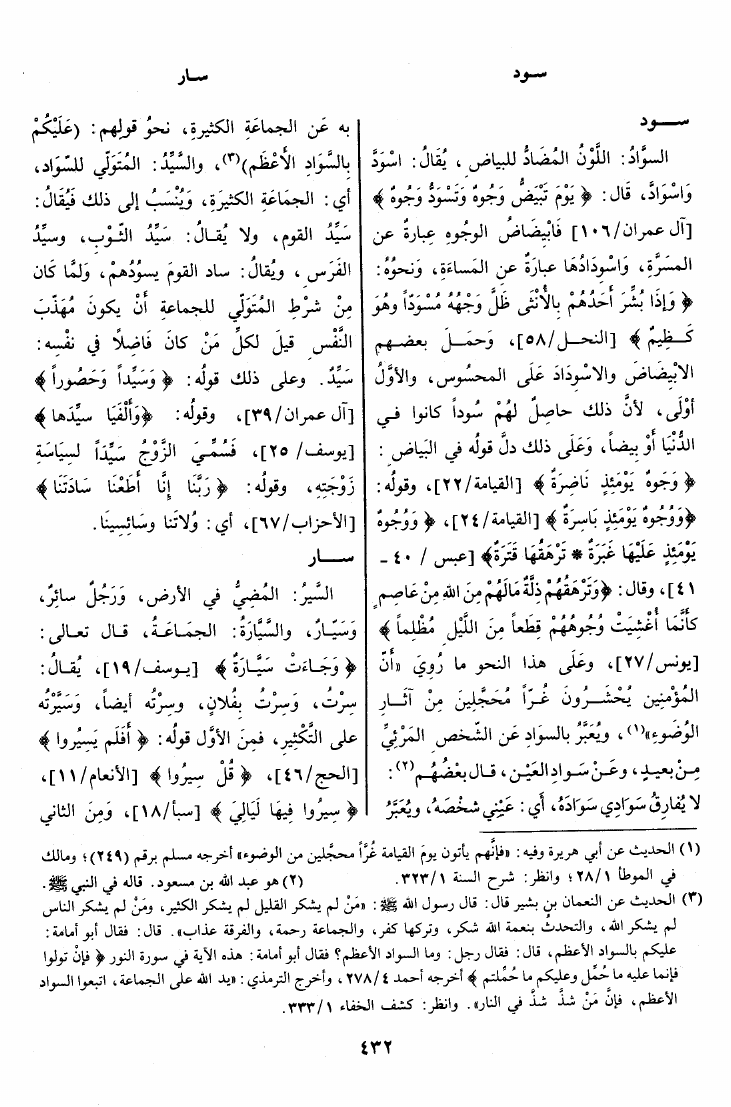 سود
سار
سود
السَّوَادُ: اللَّوْنُ المُضَادُّ للبياضِ، يُقَالُ: اسْوَدَّ
وَاسْوَادَّ، قال: ﴿ يَوْمَ تَبْيَضُّ وُجُوهٌ وَتَسْوَدُّ وُجُوهٌ ﴾
[آل عمران/١٠٦] فَابْيِضَاضُ الوجوهِ عِبارةٌ عن
المسَرَّةِ، وَاسْوِدَادُهَا عبارَةٌ عن المساءَةِ، ونحوُهُ:
﴿ وَإِذَا بُشِّرَ أَحَدُهُمْ بِالْأُنْثَى ظَلَّ وَجْهُهُ مُسْوَدّاً وهُوَ
كَظِيمٌ ﴾ [النحل/٥٨]، وَحَمَلَ بعضهم
الابْيِضَاضَ والاسْوِدَادَ عَلَى المحسُوسِ، والأوَّلُ
أوْلَى، لأنَّ ذلك حاصِلٌ لهُمْ سُوداً كانوا في
الدُّنْيَا أوْ بيضاً، وَعَلَى ذلك دلَّ قوله في البَياضِ:
﴿ وُجُوهٌ يَوْمَئِذٍ نَاضِرَةٌ ﴾ [القيامة/٢٢]، وقولُه:
﴿وَوُجُوهٌ يَوْمَئِذٍ بَاسِرَةٌ ﴾ [القيامة/٢٤]، ﴿ وَوُجُوهٌ
يَوْمَئِذٍ عَلَيْهَا غَبَرَةٌ * تَرْهَقُهَا قَتَرَةٌ﴾ [عبس / ٤٠ -
٤١]، وقال: ﴿وَتَرْهَقُهُمْ ذِلَّةٌ مَالَهُمْ مِنَ اللهِ مِنْ عَاصِمٍ
كَأَنَّمَا أُغْشِيَتْ وُجُوهُهُمْ قِطَعاً مِنَ اللَّيْلِ مُظْلِماً ﴾
[يونس/٢٧]، وعَلَى هذا النحو ما رُوِيَ «أنَّ
المُؤْمِنين يُحْشَرُونَ غُرّاً مُحَجَّلِينَ مِنْ آثَارِ
الوُضُوءِ»(١)، ويُعَبَّرُ بالسوَادِ عَنِ الشّخصِ المَرْئِيِّ
مِنْ بعيدٍ، وعَنْ سَوادِ العَيْنِ، قال بعْضُهُم(٢):
لا يُفارِقُ سَوَادِي سَوَادَهُ، أي: عَيْنِي شخْصَهُ، ويُعَبَّرُ
به عَنِ الجماعَةِ الكثيرةِ، نحوُ قولِهم: (عَلَيْكُمْ
بِالسَّوَادِ الأعْظَمِ)(٣)، والسَّيِّدُ: المُتَولِّي للسَّوادِ،
أي: الجمَاعَةِ الكثيرَةِ، وَيُنْسَبُ إلى ذلك فَيُقَالُ:
سَيِّدُ القومِ، ولا يُقالُ: سَيِّدُ الثَّوْبِ، وسيِّدُ
الفَرَسِ، ويُقالُ: ساد القومَ يسوُدُهمْ، وَلمَّا كان
مِنْ شَرْطِ المُتَوَلِّي للجماعةِ أنْ يكونَ مُهَذَّبَ
النَّفْسِ قيلَ لكلِّ مَنْ كانَ فَاضِلًا في نفْسِه:
سَيِّدٌ. وعلى ذلك قولُه: ﴿ وَسَيِّداً وَحَصُوراً ﴾
[آل عمران/٣٩]، وقولُه: ﴿وَأَلْفَيَا سَيِّدَهَا ﴾
[يوسف/ ٢٥]، فَسُمِّيَ الزَّوْجُ سَيِّداً لسِيَاسَةِ
زَوْجَتِهِ، وقولُه: ﴿ رَبَّنَا إِنَّا أَطَعْنَا سَادَتَنَا ﴾
[الأحزاب/٦٧]، أي: وُلاتَنا وسَائِسِينَا.
سار
السَّيرُ: المُضِيُّ في الأرضِ، وَرَجُلٌ سائِرٌ،
وَسَيَّارٌ، والسَّيَّارَةُ: الجمَاعَةُ، قال تعالى:
﴿ وَجَاءَتْ سَيَّارَةٌ ﴾ [يوسف/١٩]، يُقالُ:
سِرْتُ، وَسِرْتُ بِفُلانٍ، وسِرْتُه أيضاً، وَسَيَّرْتُه
على التَّكْثِيرِ، فمِنَ الأوَّلِ قولُه: ﴿ أَفَلَمْ يَسِيرُوا ﴾
[الحج/٤٦]، ﴿ قُلْ سِيرُوا ﴾ [الأنعام/١١]،
﴿ سِيرُوا فِيهَا لَيَالِيَ ﴾ [سبأ/١٨]، وَمِنَ الثاني
(١) الحديث عن أبي هريرة وفيه: «فإنَّهم يأتون يومَ القيامة غُرّاً محجَّلين من الوضوء» أخرجه مسلم برقم (٢٤٩)؛ ومالك
في الموطأ ٢٨/١؛ وانظر: شرح السنة ٣٢٣/١. (٢) هو عبد الله بن مسعود. قاله في النبي ﷺ.
(٣) الحديث عن النعمان بن بشير قال: قال رسول الله ﷺ: «مَنْ لم يشكر القليل لم يشكر الكثير، ومَنْ لم يشكر الناس
لم يشكر الله، والتحدثُ بنعمة الله شكر، وتركها كفر، والجماعة رحمة، والفرقة عذاب». قال: فقال أبو أمامة:
عليكم بالسواد الأعظم، قال: فقال رجل: وما السواد الأعظم؟ فقال أبو أمامة: هذه الآية في سورة النور ﴿ فإنْ تولوا
فإنما عليه ما حُمِّل وعليكم ما حُمِّلتم ﴾ أخرجه أحمد ٢٧٨/٤، وأخرج الترمذي: «يد الله على الجماعة، اتبعوا السواد
الأعظم، فإنَّ مَنْ شذَّ شذَّ في النار». وانظر: كشف الخفاء ٣٣٣/١.
٤٣٢